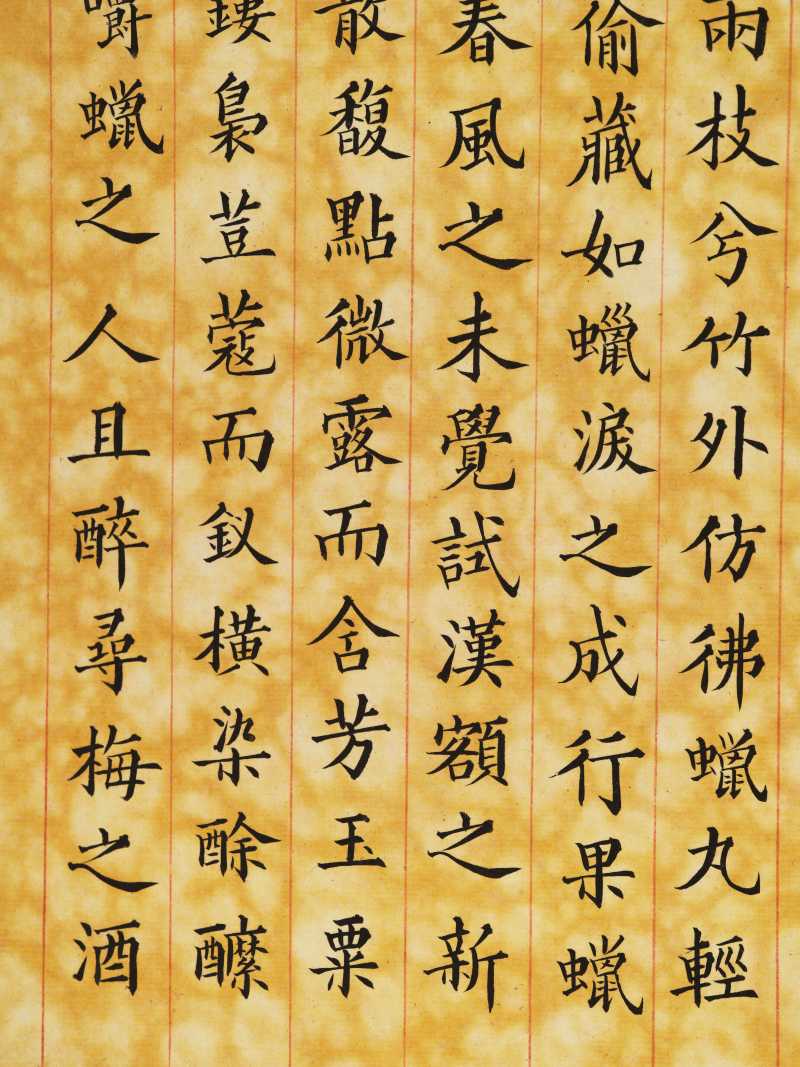 兩枝兮竹外仿彿蠟丸輕
偷藏如蠟淚之成行果蠟
春風之未覺試漢額之新
散馥點微露而含芳玉粟
鏤裊荳蔻而釵橫染酴醾
嚼蠟之人且醉尋梅之酒